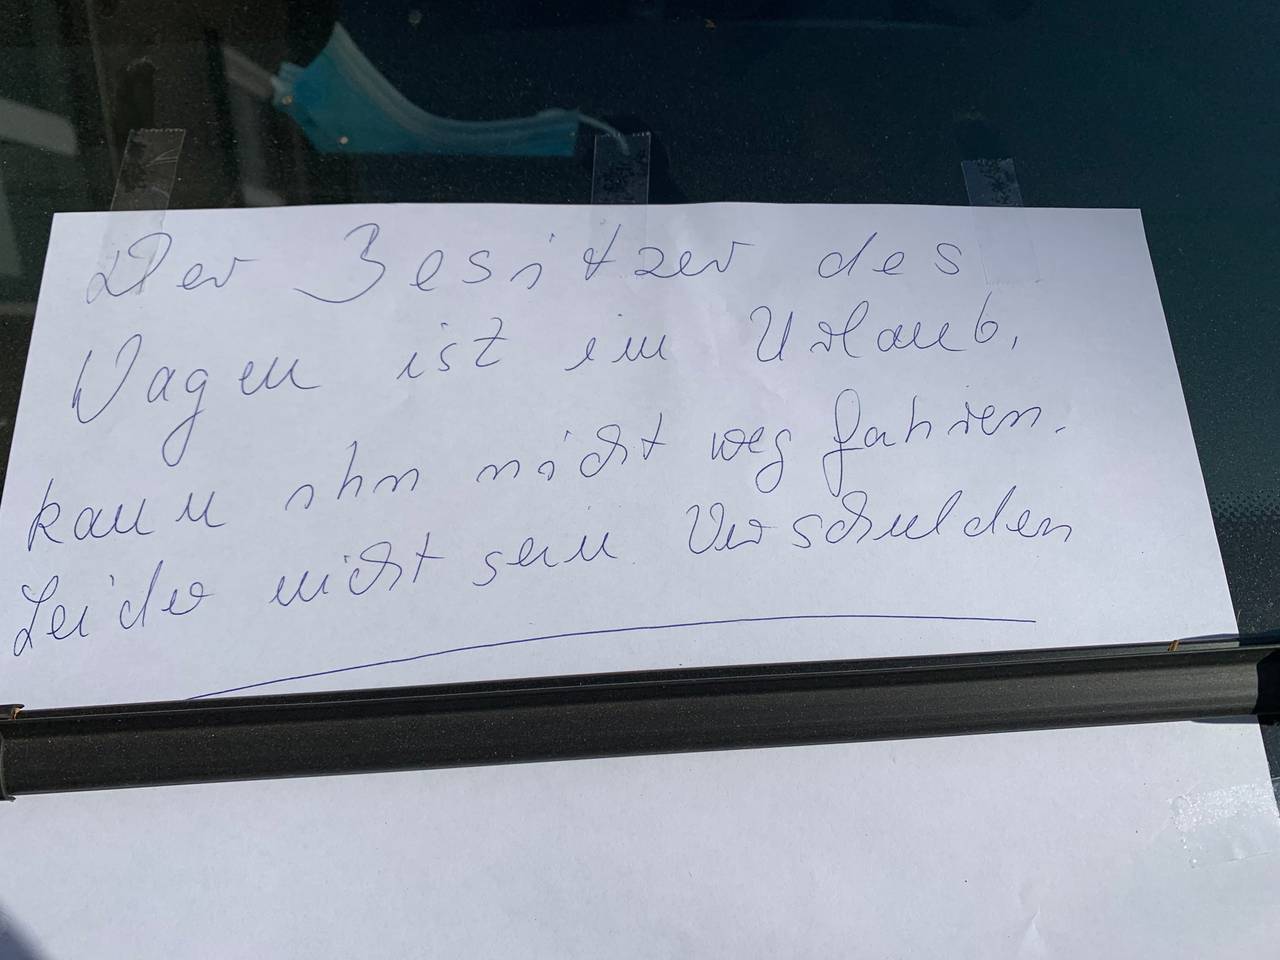 Der Besitzer des
Wagen ist im Urlaub,
kann ihn nicht weg fahren.
Leider nicht sein Verschulden